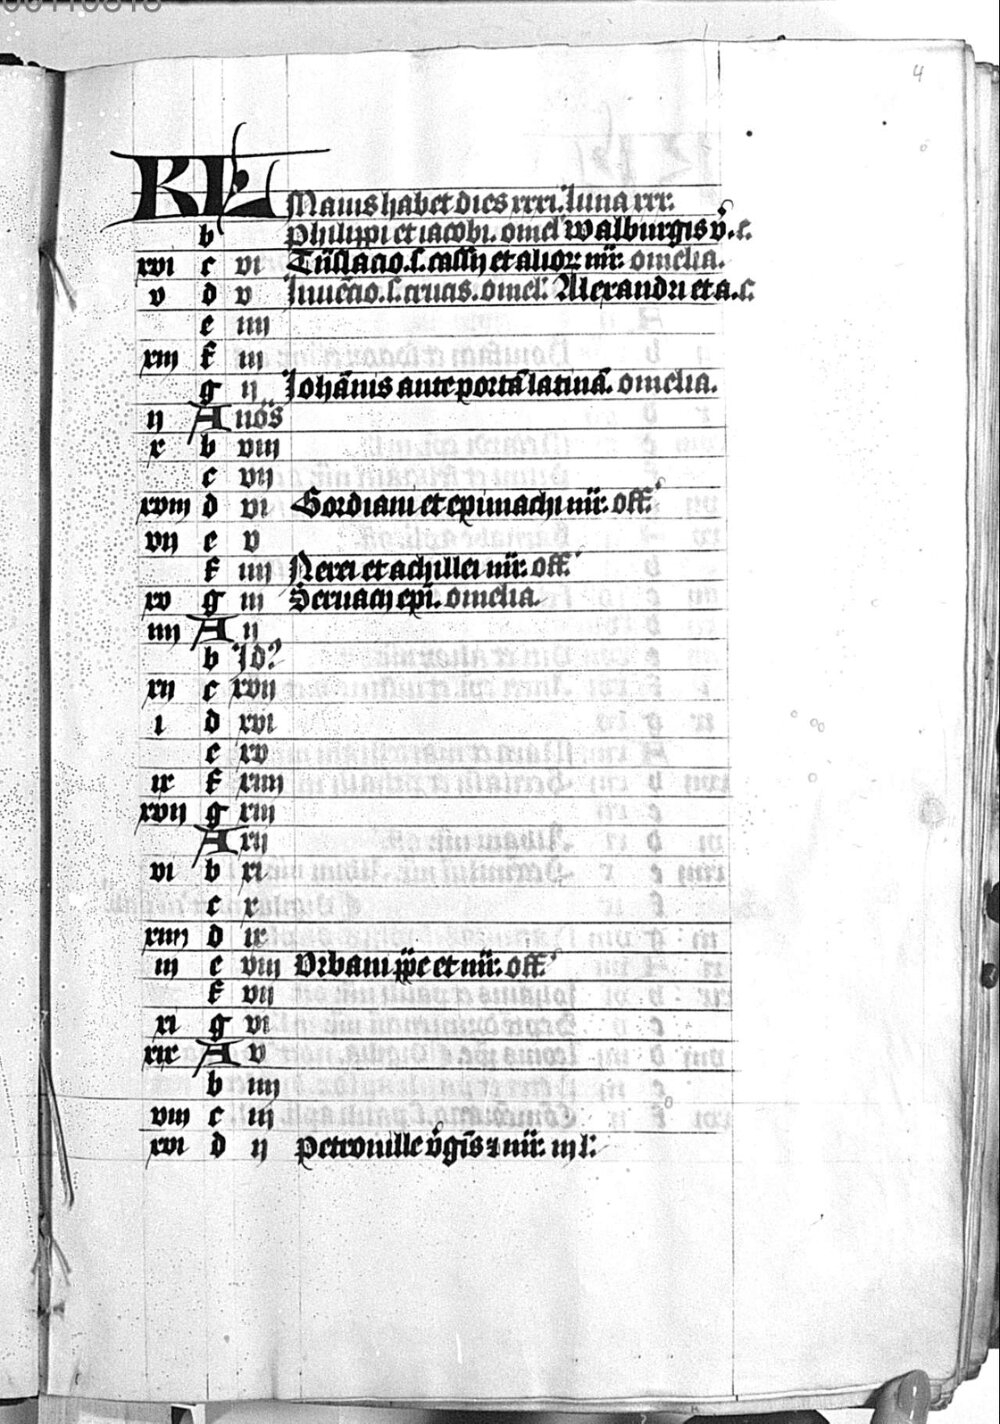 4
KL Maius habet dies xxxi. luna xxx.
b Philippi et iacobi. omel' Walburgis v̊. c.
xvi c vi Tn̄slacio. s. cassij et alior mr̄. omelia.
v d v Inuēcio. s. crucis. omel'. Alexandri et a. c.
e iiij
xiij f iij
g ij Johānis ante portā latinā. omelia.
ij A nōs
x b viij
c vij
xviij d vi Gordiani et epimachi mr̄. off'
vij e v
f iiij Nerei et achillei mr̄. off'
xv g iij Seruacij epī. omelia
iiij A ij
b Id9
xij c xvij
i d xvi
e xv
ix f xiiij
xvij g xiij
A xij
vi b xi
c x
xiiij d ix
iij e viij Vrbani pp̄e et mr̄. off'
f vij
xi g vi
xix A v
b iiij
viij c iij
xvi d ij Petronille v̊gīs ⁊ mr̄. iij l'.